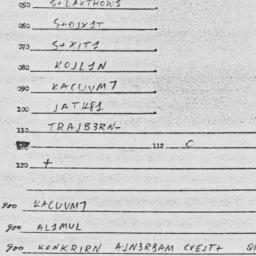 050 S+LAXTHOWS
060 S+OJX1T
070 S+XIT1
080 KOJL1N
090 KACUVM7
100 JAT1481
110 TRAJB3RN-
112 C
120 +
900 KACUVM7
900 AL1MUL
900 KONKRIRN AJN3RBAM CVEJT+